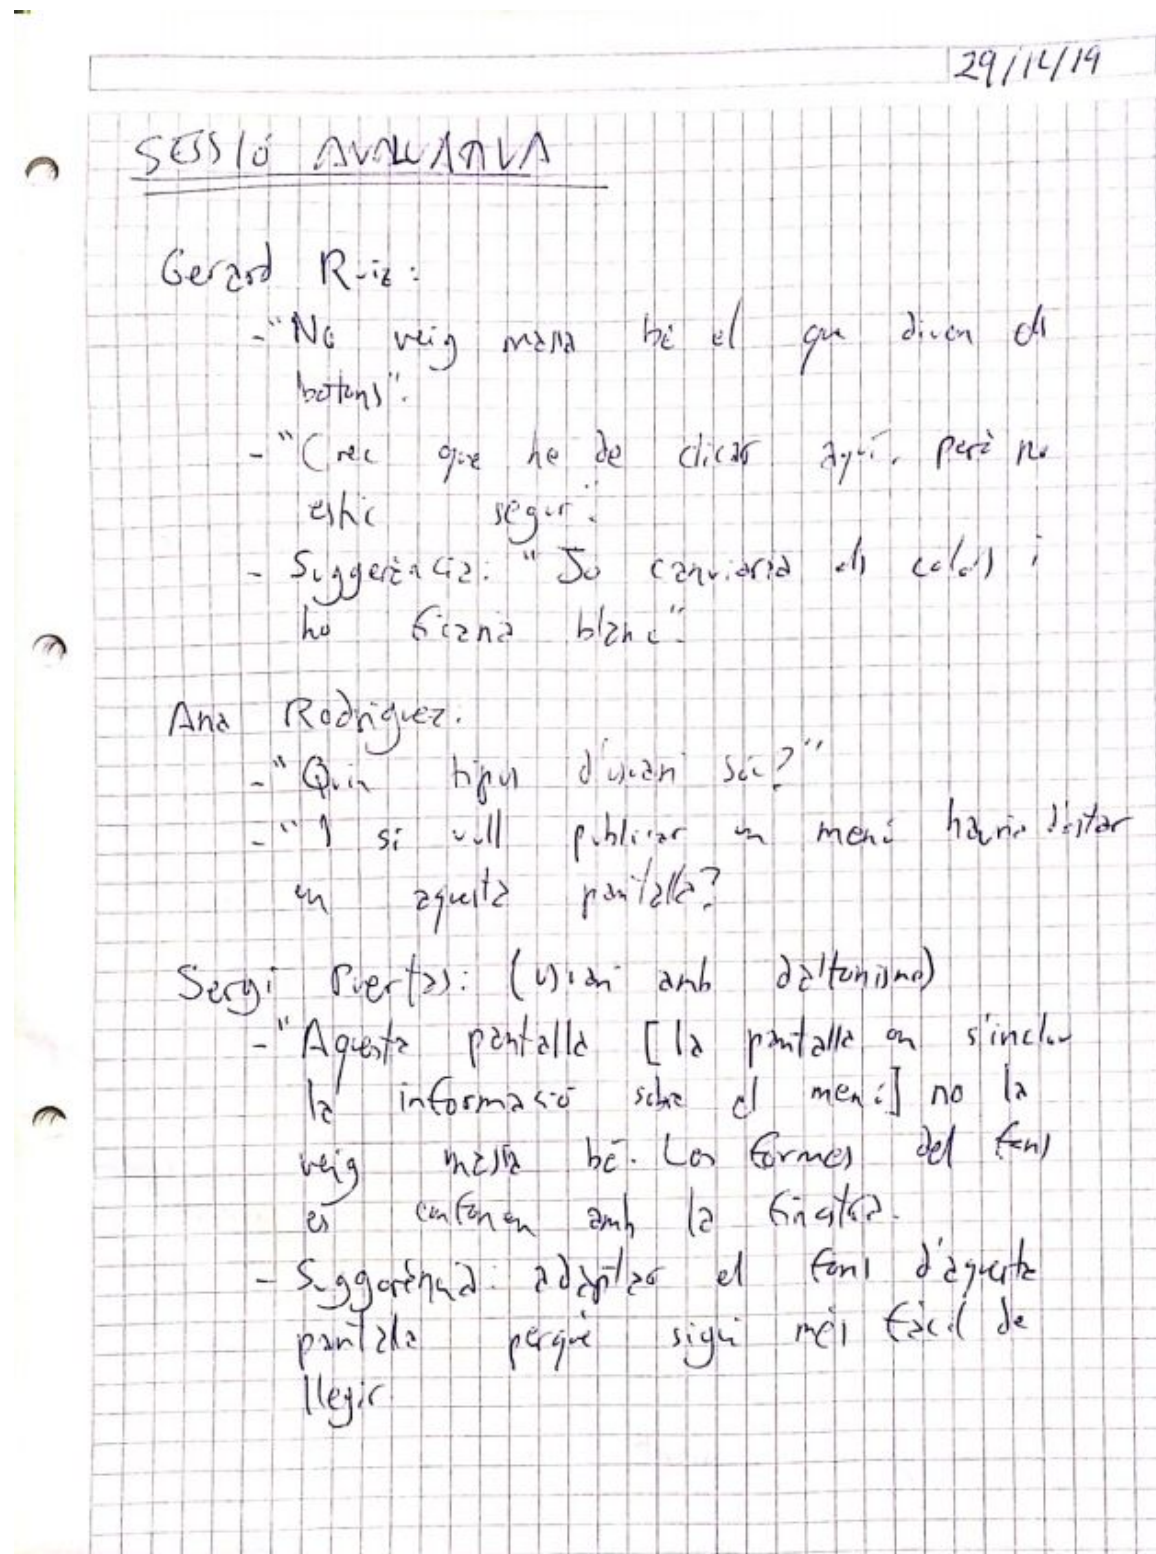 29/12/19
SESSIÓ AVALUATIVA
Gerard Ruiz:
-"No veig massa bé el que diuen els
botons".
-"Crec que he de clicar aquí, però no
estic segur".
- Suggerència: "Jo canviaria els colors i
ho ficaria blanc".
Ana Rodríguez:
-"Quin tipus d'usuari sóc?"
-"I si vull publicar un menú hauria d'estar
en aquesta pantalla?
Sergi Puertas: (usuari amb daltonisme)
-"Aquesta pantalla [la pantalla on s'inclou
la informació sobre el menú] no la
veig massa bé. Les formes del fons
es confonen amb la finestra.
- Suggerència: adaptar el fons d'aquesta
pantalla perquè sigui més fàcil de
llegir.